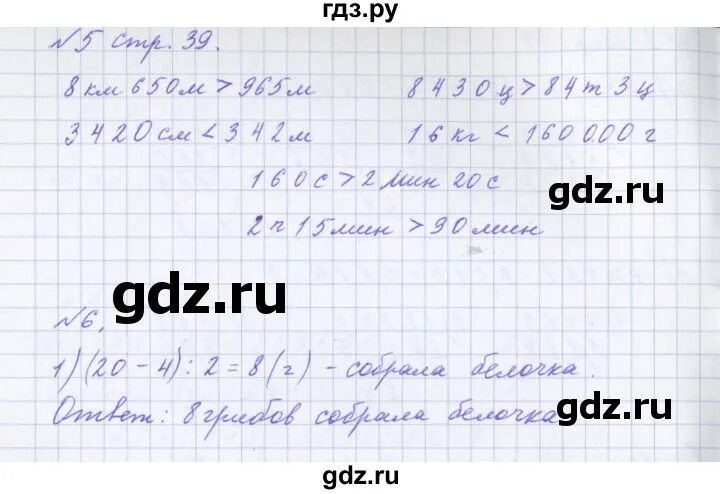 гдз.ру
№5 стр. 39.
8 км 650 м > 965 м 8430 ц > 84 т 3 ц
3420 см < 342 м 16 кг < 160000 г
160 с > 2 мин 20 с
gdz.ru
2 ч 15 мин > 90 мин
gdz.ru
№6.
1) (20 - 4) : 2 = 8 (г) - собрала белочка.
Ответ: 8 грибов собрала белочка
gdz.ru
gdz.ru